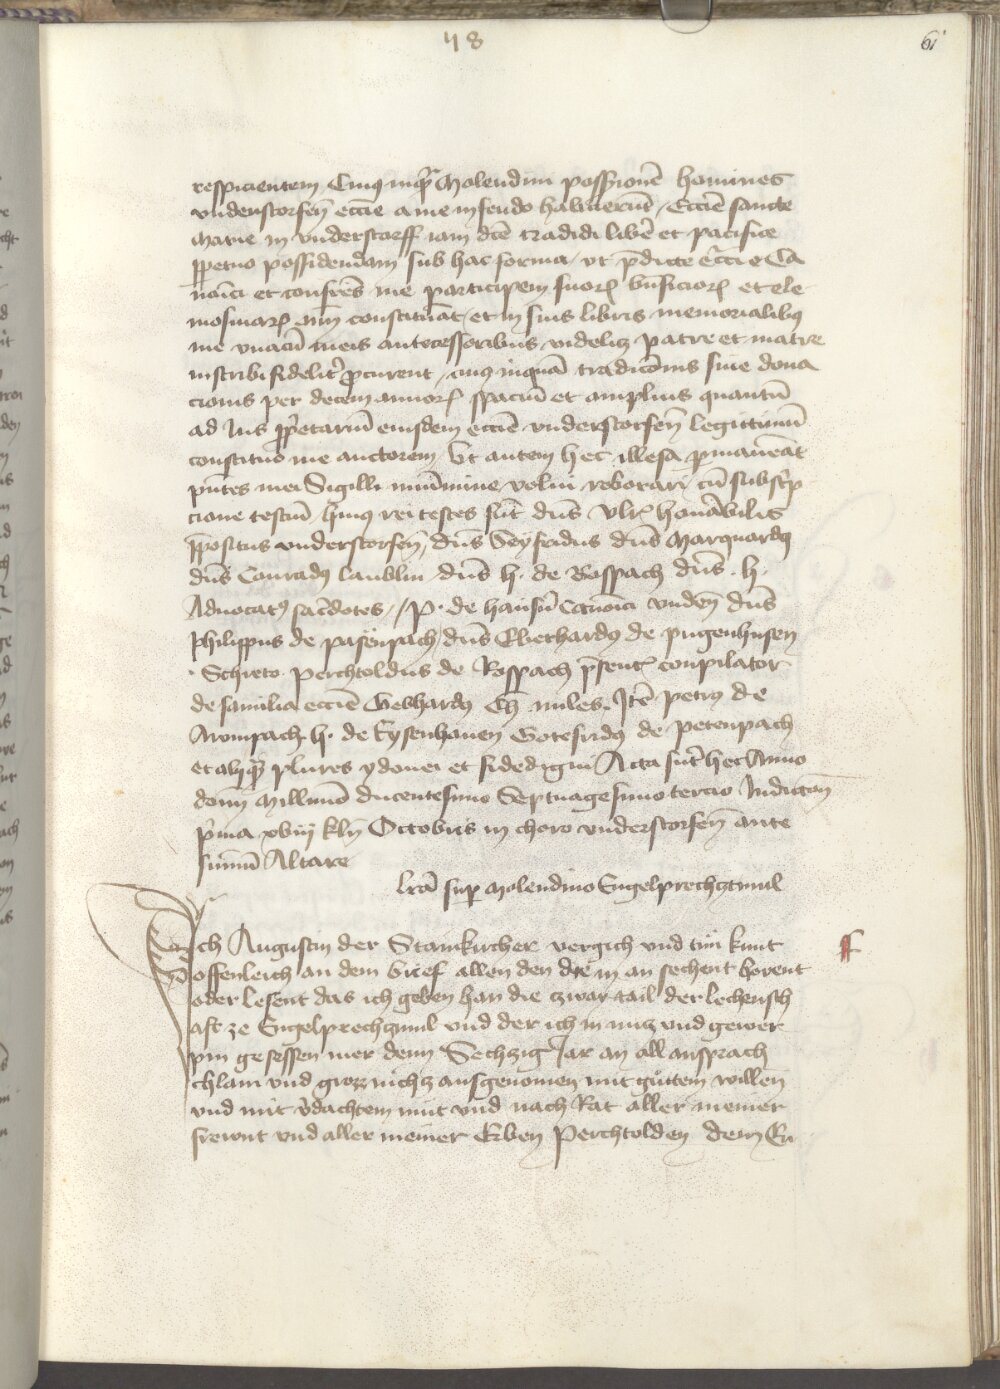 48
61
respicientem Cuius inquā Molendini possessionē homines
vnderstorfen̄ eccīe a me in feudo habuerūt, Eccīe sancte
Marie in vnderstorff iam dcē tradidi libē et pacifice
ꝑpetuo possidendam sub hac forma vt p̄dicte ecc̄ie Ca
nōici et confrēs me participem suorꝫ bn̄ficiorꝫ et ele
mosinarꝫ constituāt et in suis libris memorialibꝰ
me vnacū meis antecessoribus videlicꝫ patre et matre
inscribi fidelit̄ ꝓcurent, cuiꝰ inquā tradicōnis siue dona
cionis per decem annorꝫ spaciū et amplius quantū
ad Ius ꝓp̄etariū eiusdem eccīe vnderstorfen̄ legittimū
constituo me auctorem Vt autem hec illesa ꝑmaneāt
pn̄tes mei Sigilli mūimine volui roborari cū subscp̄
cione testiū huiꝰ rei testes sūt dn̄s Vlrꝫ honōabilis
p̄positus vnderstorfen̄, dn̄s Seyfridus dn̄s Marquardꝰ
dn̄s Conradꝰ laublin dn̄s h. de Rospach dn̄s . h.
Aduocatꝰ sac̄dotes, P. de hausn̄ Canōici vnden̄ dn̄s
Philippus de pasenpach dn̄s Eberhardꝰ de pugenhusen
. Schreto Perchtoldus de Rospach p̄sentꝫ conpilator
de familia eccīe Gebhardꝰ miles. Itē petrꝰ de
Arompach h. de Eysenhouen Gotefridꝰ de Petenpach
et alij qꝫ plures ydonei et fidedigni Acta sūt hec Anno
domī Millimō ducentesimo Septuagesimo tercio Indictōn
p̄ma xviij kln̄ Octobris in choro vnderstorfen̄ ante
sūmū Altare
lrā suꝑ Molendino Engelprechtzmul
Ich Augustin der Stainkircher vergich vnd tūn kunt
offenleich an dem brief allen den die in an sechent hörent
oder lesent das ich geben han die zway tail der lechensch
aft ze Engelprechtzmul vnd der ich in nutz vnd gewer
pin gesessen mer denn Sechtzig Jar an all ansprach
chlain vnd grozz nichtz ausgenomen mit gůttem willen
vnd mit v̄dachtem mut vnd nach Rat aller meiner
freiwnt vnd aller meiner Erben Perchtolden dem En